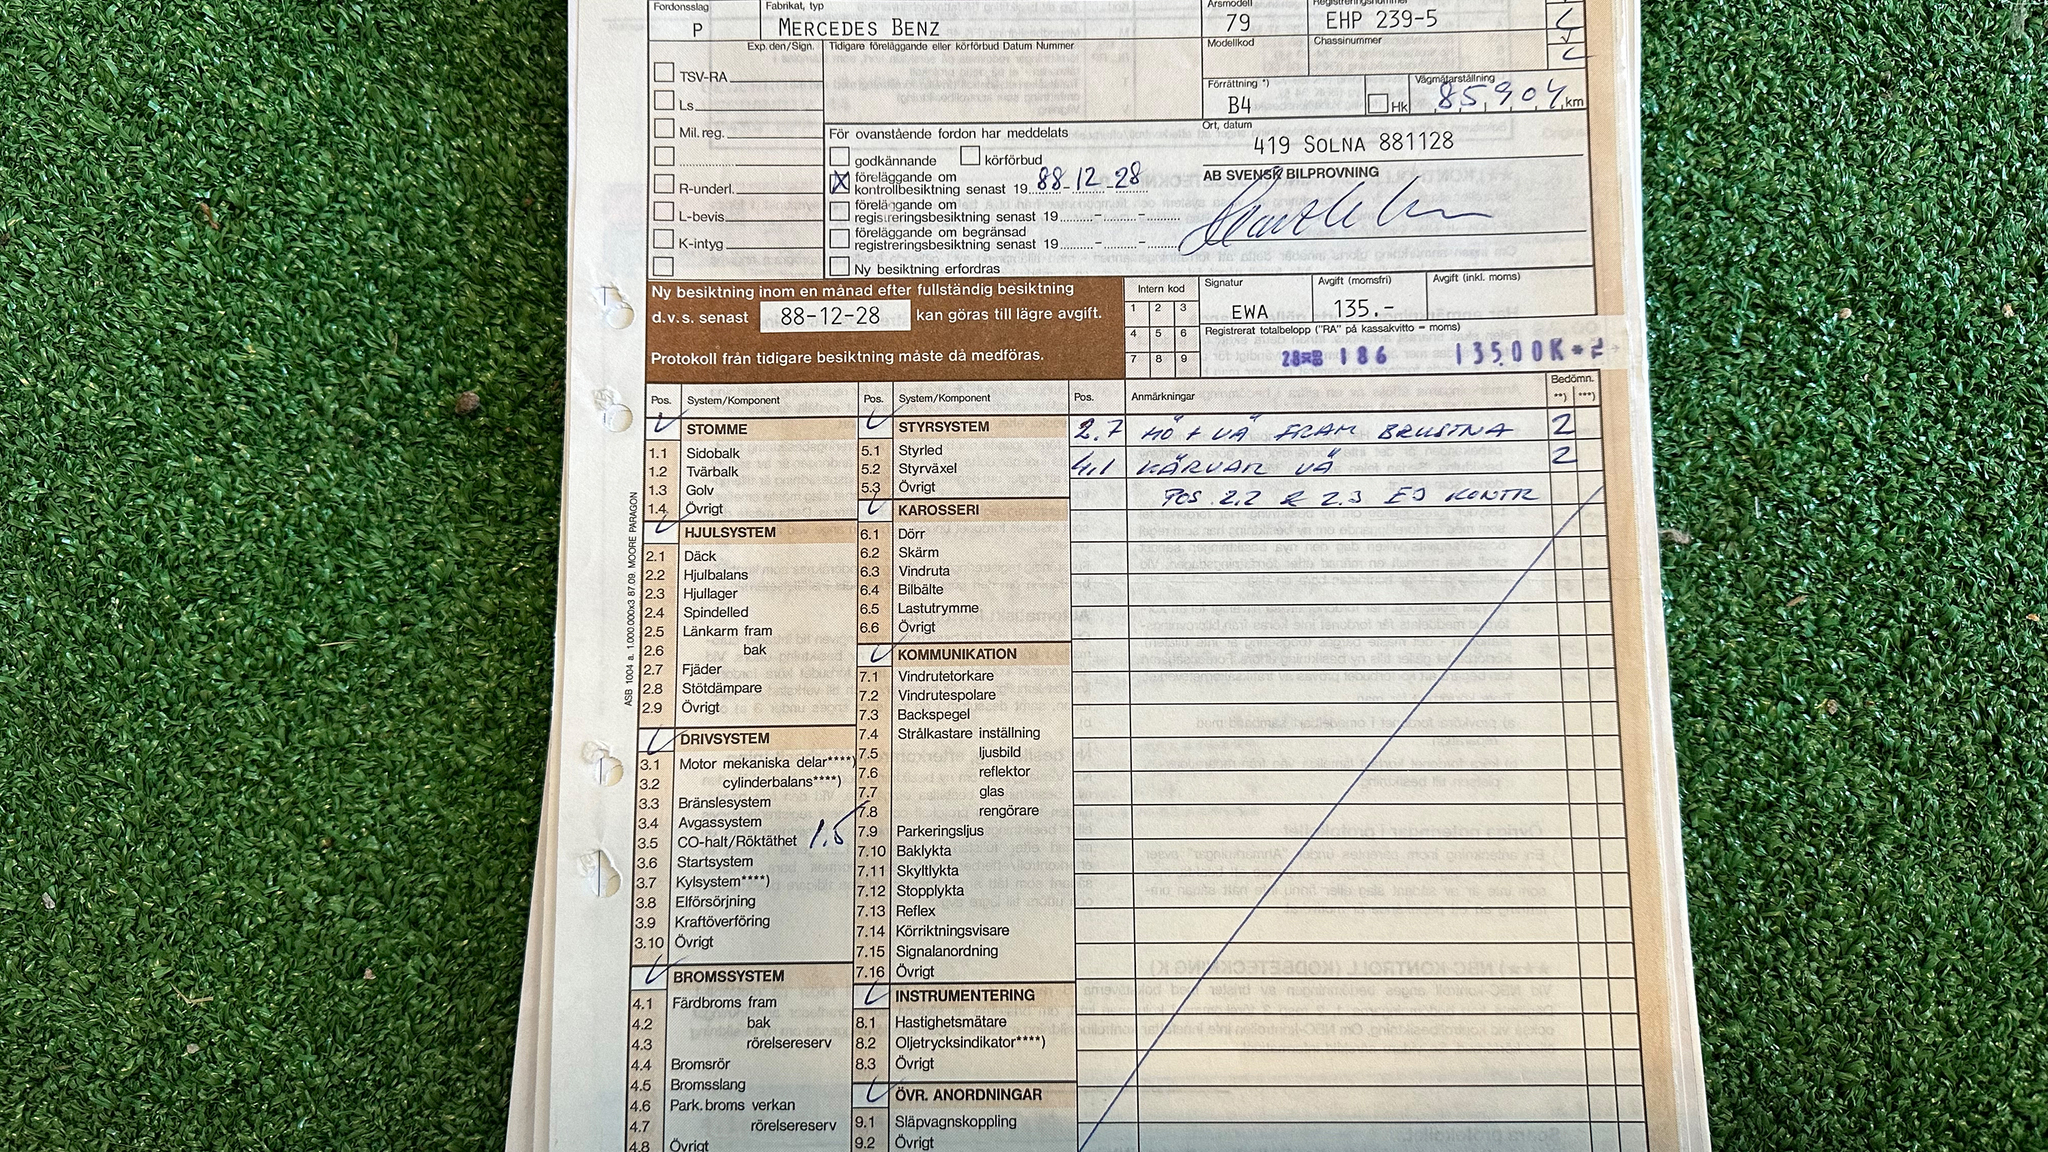 Fordonsslag Fabrikat, typ Årsmodell Registreringsnummer
P MERCEDES BENZ 79 EHP 239-5
Exp.den/Sign. Tidigare föreläggande eller körförbud Datum Nummer Modelkod Chassinummer
TSV-RA
Ls
Förrättning *) Vägmätarställning
B4 Hk 85904 km
Mil.reg.
För ovanstående fordon har meddelats
Ort, datum
419 SOLNA 881128
godkännande körförbud
AB SVENSK BILPROVNING
R-underl.
X föreläggande om
kontrollbesiktning senast 19 88-12-28
L-bevis
föreläggande om
registreringsbesiktning senast 19
K-intyg
föreläggande om begränsad
registreringsbesiktning senast 19
Ny besiktning erfordras
Ny besiktning inom en månad efter fullständig besiktning
d.v.s. senast 88-12-28 kan göras till lägre avgift.
Protokoll från tidigare besiktning måste då medföras.
Intern kod
1 2 3
4 5 6
7 8 9
Signatur Avgift (momsfri) Avgift (inkl. moms)
EWA 135.-
Registrerat totalbelopp ("RA" på kassakvitto = moms)
186 135.00K
Pos. System/Komponent Pos. System/Komponent Pos. Anmärkningar Bedömn.
**) ***)
STOMME
1.1 Sidobalk
1.2 Tvärbalk
1.3 Golv
1.4 Övrigt
HJULSYSTEM
2.1 Däck
2.2 Hjulbalans
2.3 Hjullager
2.4 Spindelled
2.5 Länkarm fram
2.6 bak
2.7 Fjäder
2.8 Stötdämpare
2.9 Övrigt
DRIVSYSTEM
3.1 Motor mekaniska delar****)
3.2 cylinderbalans****)
3.3 Bränslesystem
3.4 Avgassystem
3.5 CO-halt/Röktäthet 1.5
3.6 Startsystem
3.7 Kylsystem****)
3.8 Elförsörjning
3.9 Kraftöverföring
3.10 Övrigt
BROMSSYSTEM
4.1 Färdbroms fram
4.2 bak
4.3 rörelsereserv
4.4 Bromsrör
4.5 Bromsslang
4.6 Park.broms verkan
4.7 rörelsereserv
4.8 Övrigt
STYRSYSTEM
5.1 Styrled
5.2 Styrväxel
5.3 Övrigt
KAROSSERI
6.1 Dörr
6.2 Skärm
6.3 Vindruta
6.4 Bilbälte
6.5 Lastutrymme
6.6 Övrigt
KOMMUNIKATION
7.1 Vindrutetorkare
7.2 Vindrutespolare
7.3 Backspegel
7.4 Strålkastare inställning
7.5 ljusbild
7.6 reflektor
7.7 glas
7.8 rengörare
7.9 Parkeringsljus
7.10 Baklykta
7.11 Skyltlykta
7.12 Stopplykta
7.13 Reflex
7.14 Körriktningsvisare
7.15 Signalanordning
7.16 Övrigt
INSTRUMENTERING
8.1 Hastighetsmätare
8.2 Oljetrycksindikator****)
8.3 Övrigt
ÖVR. ANORDNINGAR
9.1 Släpvagnskoppling
9.2 Övrigt
2.7 HÖ + VÄ FRAM BRUSTNA 2
4.1 KÄRVAR VÄ 2
POS 2.2 & 2.3 EJ KONTR
ASB 1004 a. 1.000.000x3 87.09. MOORE PARAGON